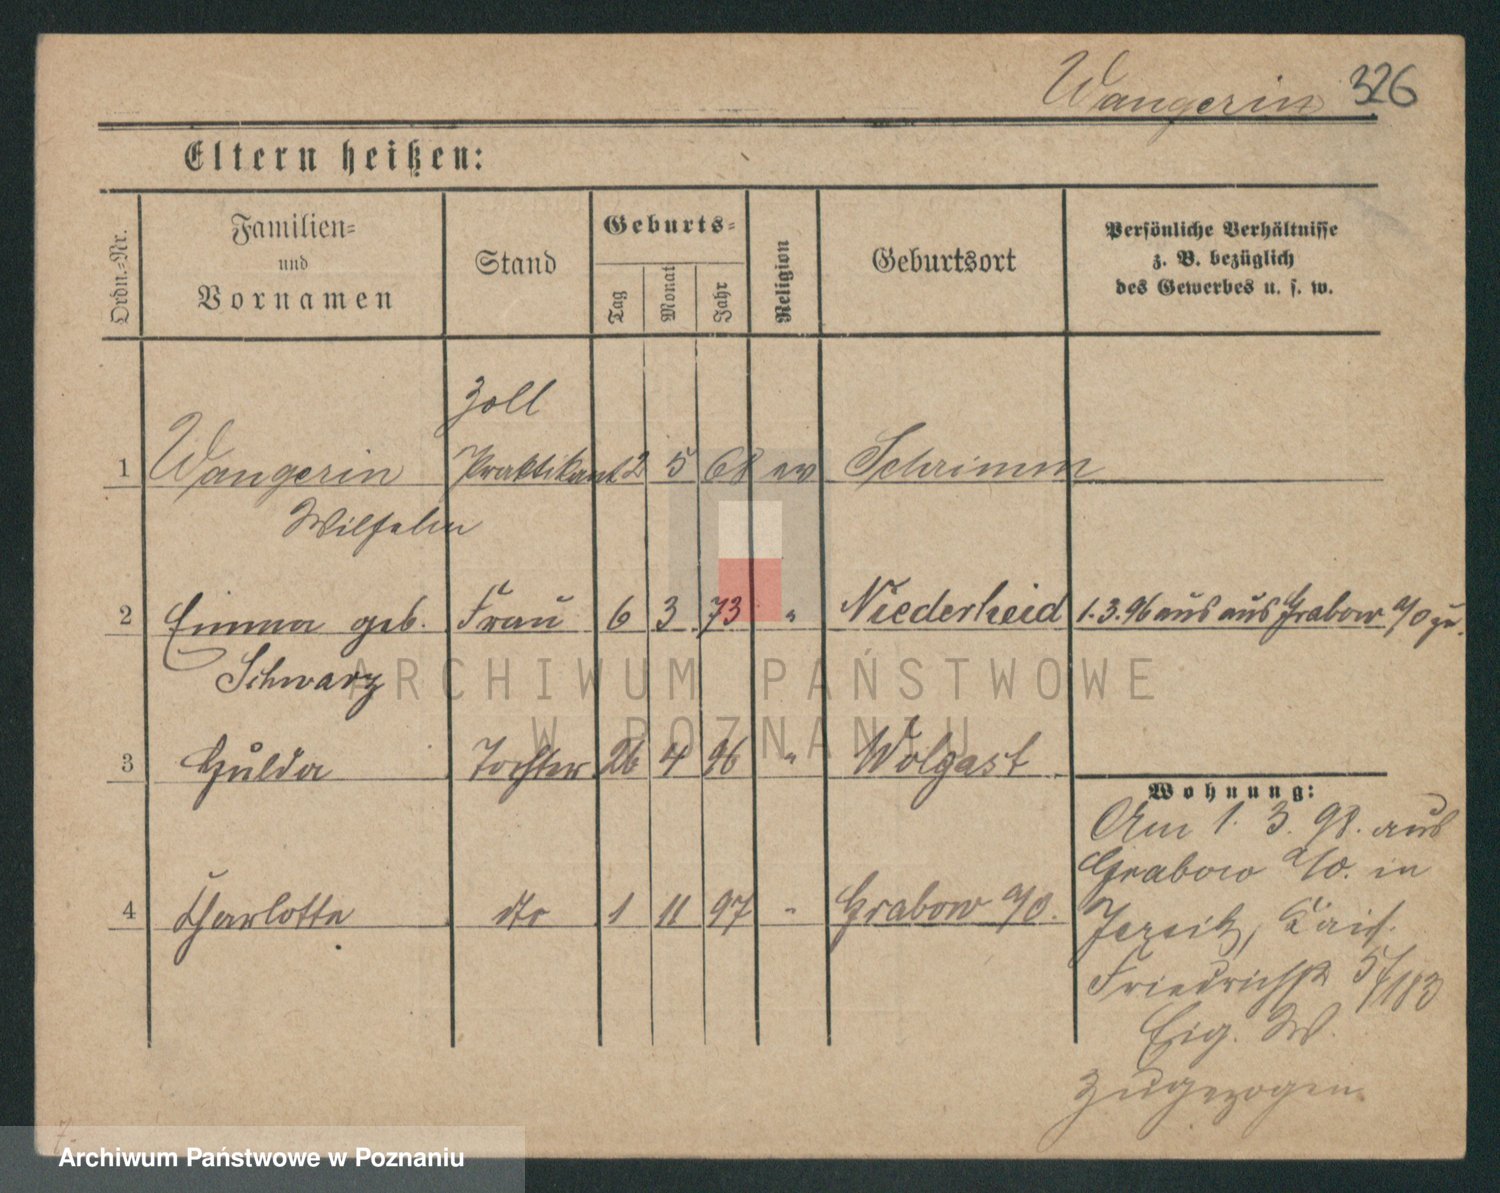 Wangerin 326
Eltern heißen:
Ordn.-Nr.
Familien-
und
Vornamen
Stand
Geburts-
Tag
Monat
Jahr
Religion
Geburtsort
Persönliche Verhältnisse
z. B. bezüglich
des Gewerbes u. s. w.
Zoll
1 Wangerin Praktikant 2 5 68 ev Schrimm
Wilhelm
2 Emma geb. Frau 6 3 73 " Niederheid 1.3.96 aus aus Grabow a/O zu.
Schwarz
3 Hulda Tochter 26 4 96 " Wolgast
Wohnung:
Am 1. 3. 98. aus
Grabow a/O. in
4 Charlotte dto 1 11 97 " Grabow a/O.
Jersitz, Kais.
Friedrichstr 183
Eig. W.
zugezogen
7.
ARCHIWUM PAŃSTWOWE
W POZNANIU
Archiwum Państwowe w Poznaniu